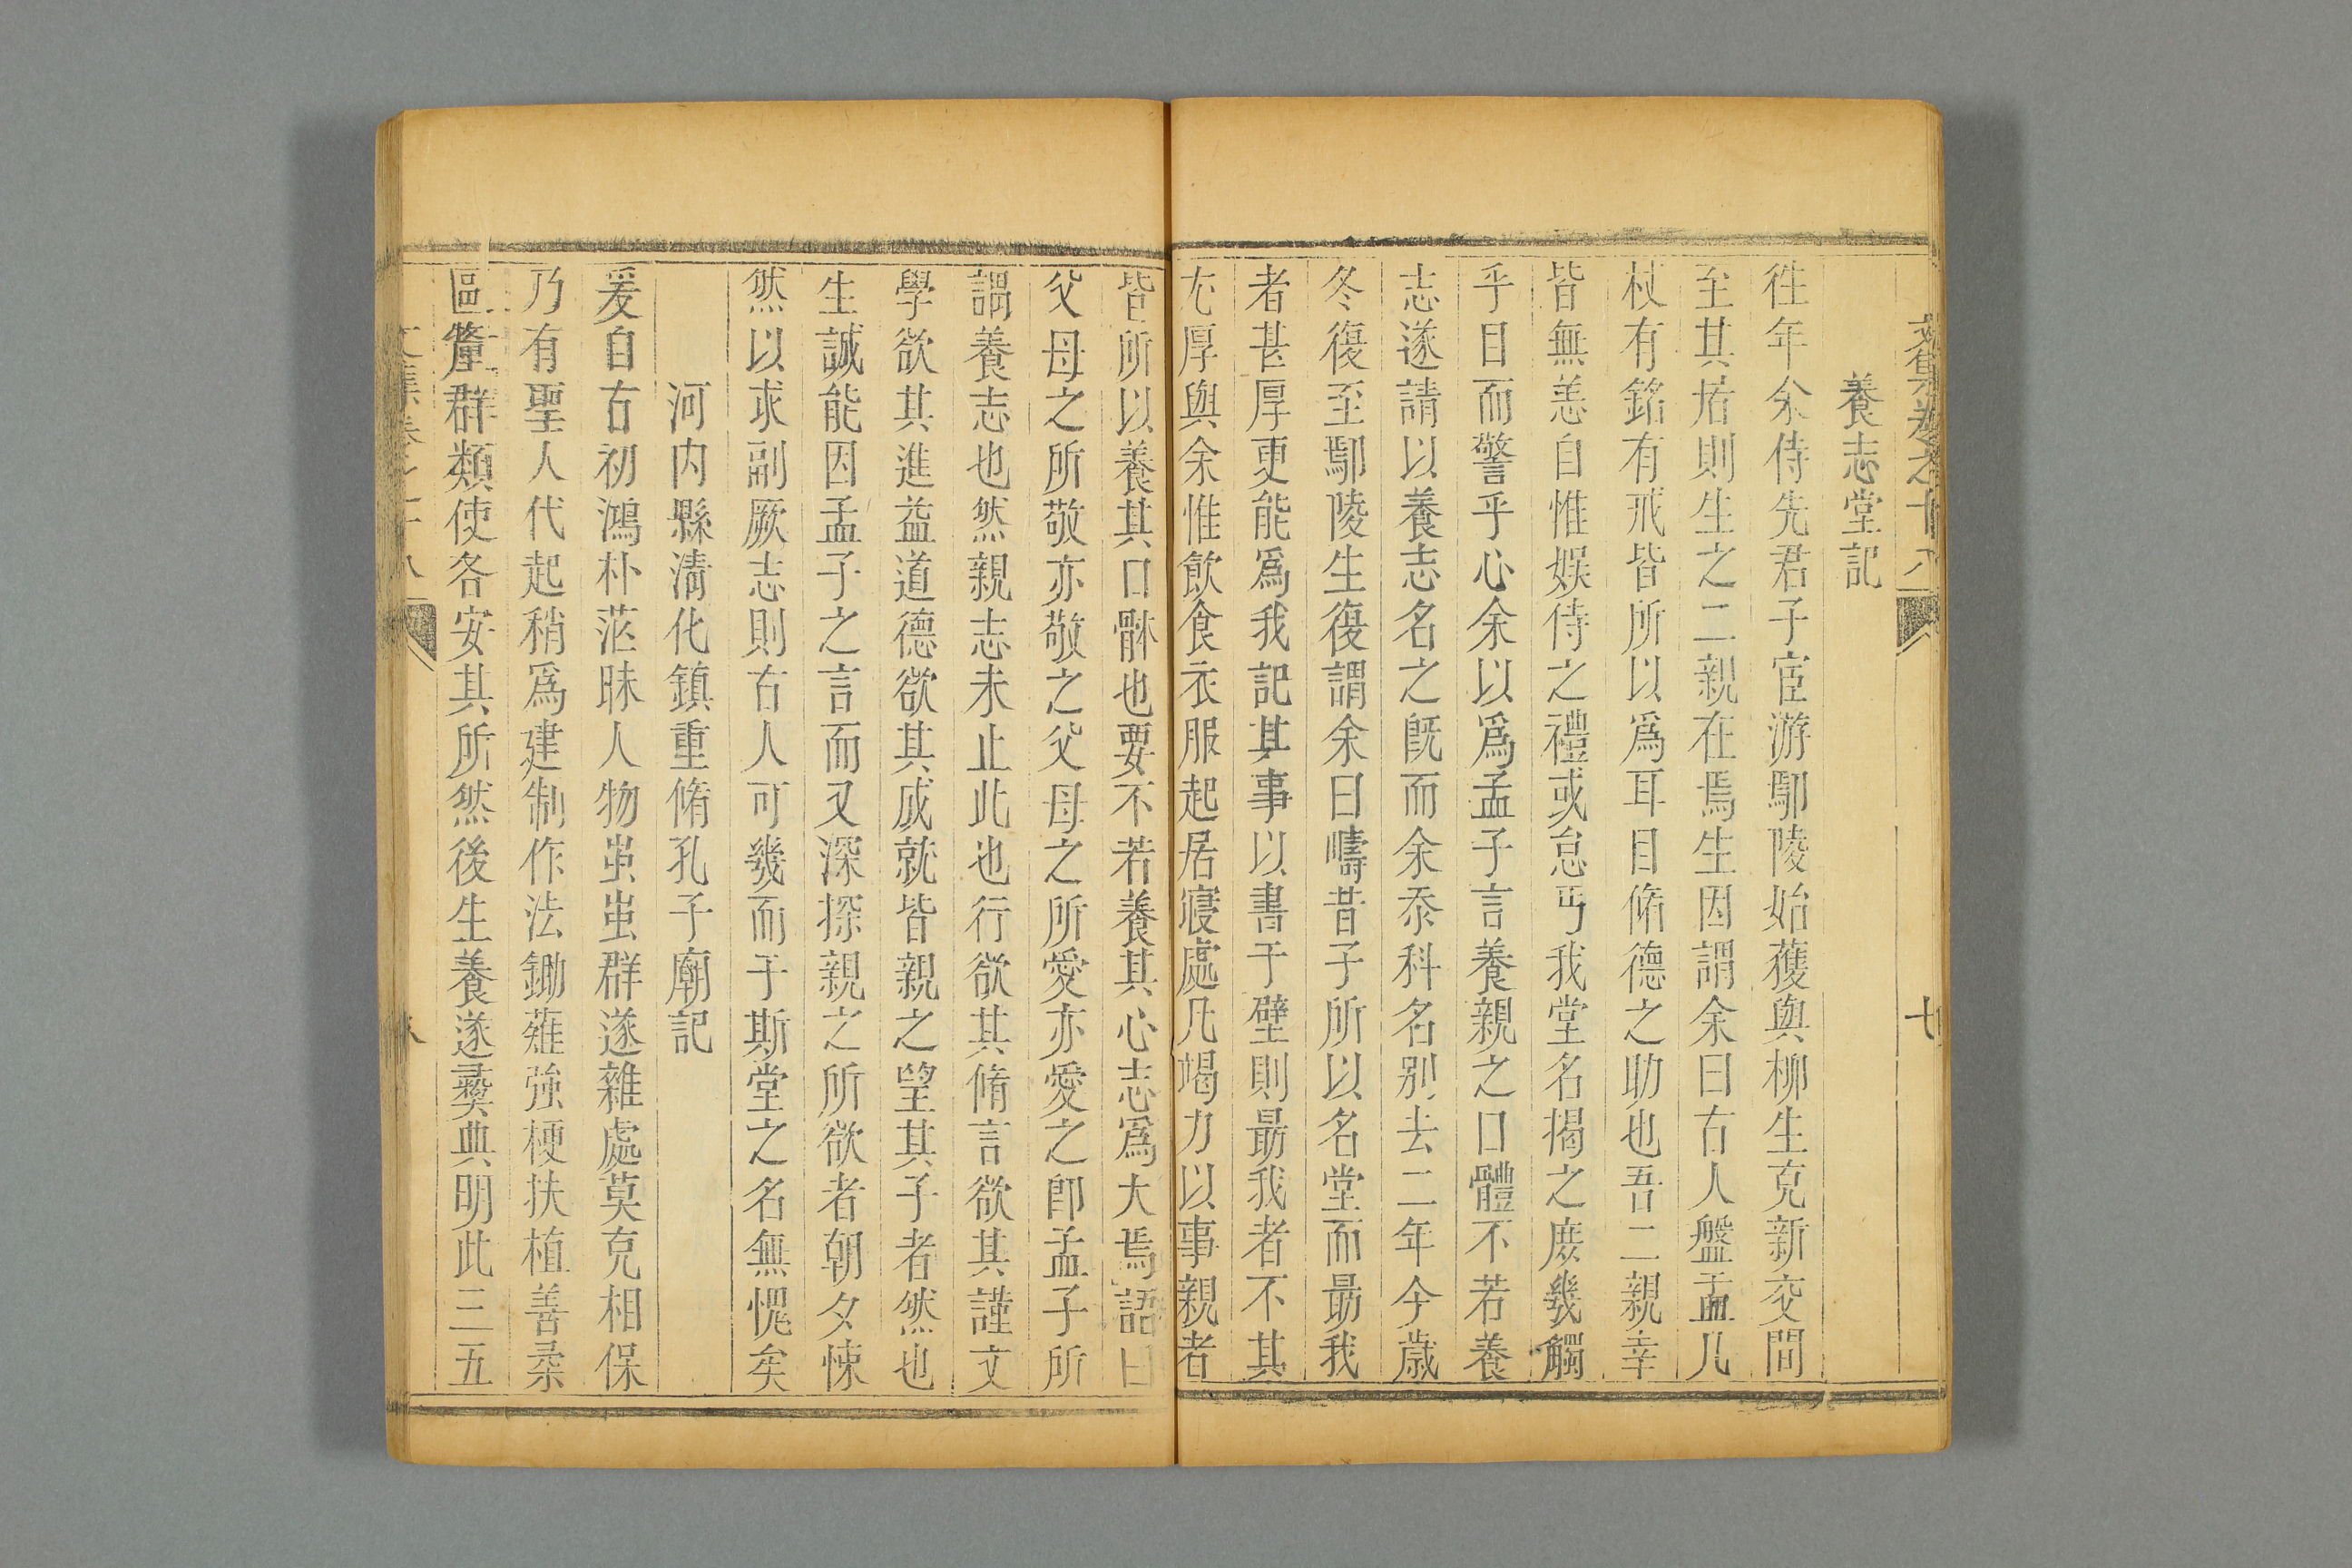 文集卷之十八
七
養志堂記
徃年余侍先君子宦游鄢陵始獲與柳生克新交間
至其居則生之二親在焉生因謂余曰古人盤盂几
杖有銘有戒皆所以爲耳目脩德之助也吾二親幸
皆無恙自惟娛侍之禮或怠丐我堂名揭之庶幾觸
乎目而警乎心余以爲孟子言養親之口體不若養
志遂請以養志名之旣而余忝科名别去二年今歳
冬復至鄢陵生復謂余曰疇昔子所以名堂而勗我
者甚厚更能爲我記其事以書于壁則勗我者不其
尤厚與余惟飲食衣服起居寢處凡竭力以事親者
皆所以養其口骵也要不若養其心志爲大焉語曰
父母之所敬亦敬之父母之所愛亦愛之即孟子所
謂養志也然親志未止此也行欲其脩言欲其謹文
學欲其進益道德欲其成就皆親之望其子者然也
生誠能因孟子之言而又深探親之所欲者朝夕悚
然以求副厥志則古人可幾而于斯堂之名無愧矣
河内縣清化鎮重脩孔子廟記
爰自古初鴻朴茫昧人物蚩蚩群遂雜處莫克相保
乃有聖人代起稍爲建制作法鋤薙強梗扶植善柔
區釐群類使各安其所然後生養遂彞典明此三五
文集卷之十八